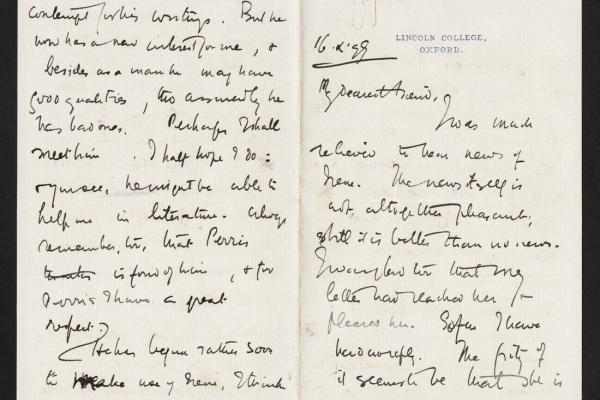 LINCOLN COLLEGE,
OXFORD.
16.x.99
My dearest friend,
I was much
relieved to hear news of
Irene. The news itself is
not altogether pleasant,
still it is better than no news.
I was glad too that my
letter had reached her &
pleased her. So far I have
had no reply. The pity of
it seems to be that she is
contempt for his writings. But he
now has a new interest for me, &
besides as a man he may have
good qualities, tho assuredly he
has bad ones. Perhaps I shall
meet him. I half hope I do:
you see, he might be able to
help me in literature. Always
remember, too, that Perris
is fond of him, & for
Perris I have a great
respect.
He has begun rather soon
to make use of Irene, I think